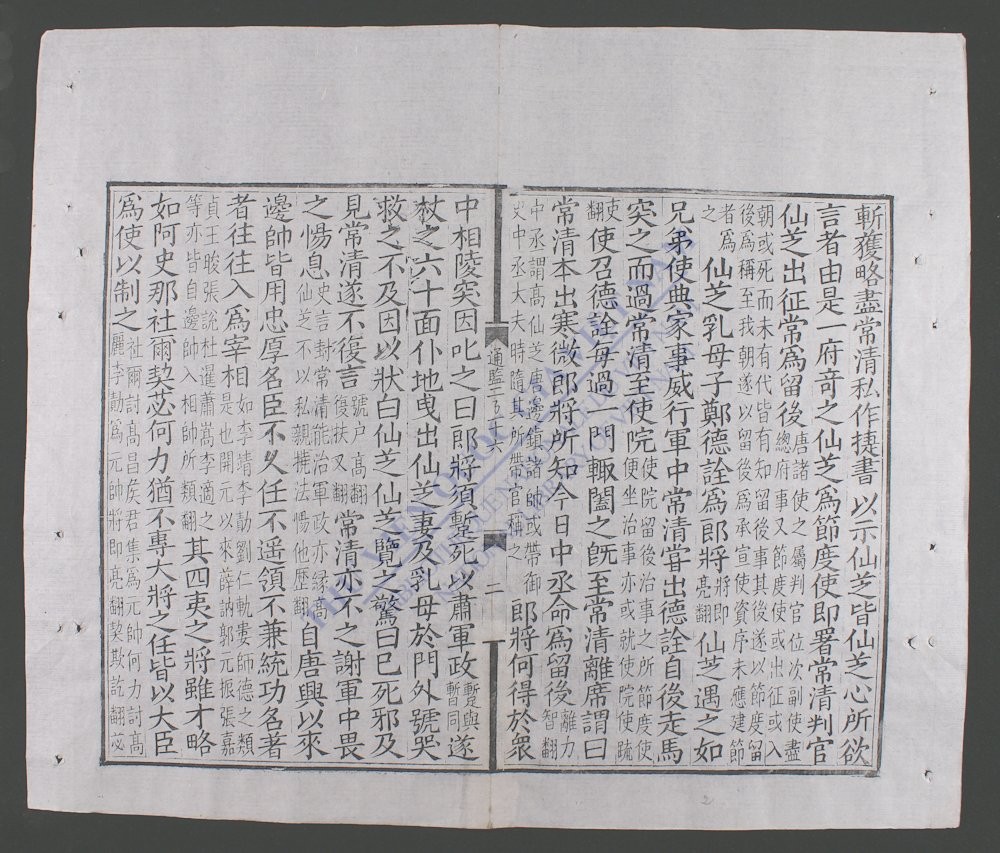 斬獲略盡常清私作捷書以示仙芝皆仙芝心所欲
言者由是一府奇之仙芝爲節度使即署常清判官
仙芝出征常爲留後唐諸使之屬判官位次副使盡總府事又節度使或出征或入
朝或死而未有代皆有知留後事其後遂以節度留後爲稱至我朝遂以留後爲承宣使資序未應建節
者爲之仙芝乳母子鄭德詮爲郎將將即亮翻仙芝遇之如
兄弟使典家事威行軍中常清嘗出德詮自後走馬
突之而過常清至使院使院留後治事之所節度使便坐治事亦或就使院使疏
吏翻使召德詮每過一門輒闔之旣至常清離席謂曰
常清本出寒微郎將所知今日中丞命爲留後離力智翻
中丞謂高仙芝唐邊鎮諸帥或帶御史中丞大夫時隨其所帶官稱之郎將何得於衆
通監二百十六
二
中相陵突因叱之曰郎將須蹔死以肅軍政蹔與暫同遂
杖之六十面仆地曳出仙芝妻及乳母於門外號哭
救之不及因以狀白仙芝仙芝覽之驚曰已死邪及
見常清遂不復言號户高翻復扶又翻常清亦不之謝軍中畏
之惕息史言封常清能治軍政亦緣高仙芝不以私親撓法惕他歷翻自唐興以來
邊帥皆用忠厚名臣不久任不遥領不兼統功名著
者往往入爲宰相如李靖李勣劉仁軌婁師德之類是也開元以來薛訥郭元振張嘉
貞王晙張說杜暹蕭嵩李適之等亦皆自邊帥入相帥所類翻其四夷之將雖才略
如阿史那社爾契苾何力猶不專大將之任皆以大臣
爲使以制之社爾討高昌侯君集爲元帥何力討高麗李勣爲元帥將即亮翻契欺訖翻苾
2